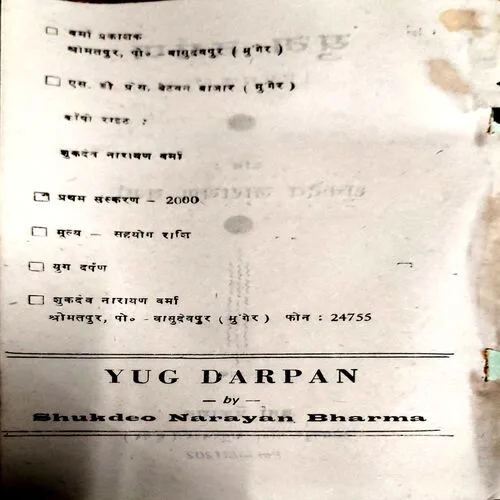 वर्मा प्रकाशक
श्रीमतपुर, पो० - वासुदेवपुर ( मुंगेर )
एस. डी प्रेस, बेटवन बाजार ( मुंगेर )
कॉपी राइट :
शुकदेव नारायण वर्मा
प्रथम संस्करण – 2000
मूल्य – सहयोग राशि
युग दर्पण
शुकदेव नारायण वर्मा
श्रीमतपुर, पो० - वासुदेवपुर ( मुंगेर ) फोन : 24755
YUG DARPAN
— by —
Shukdeo Narayan Bharma